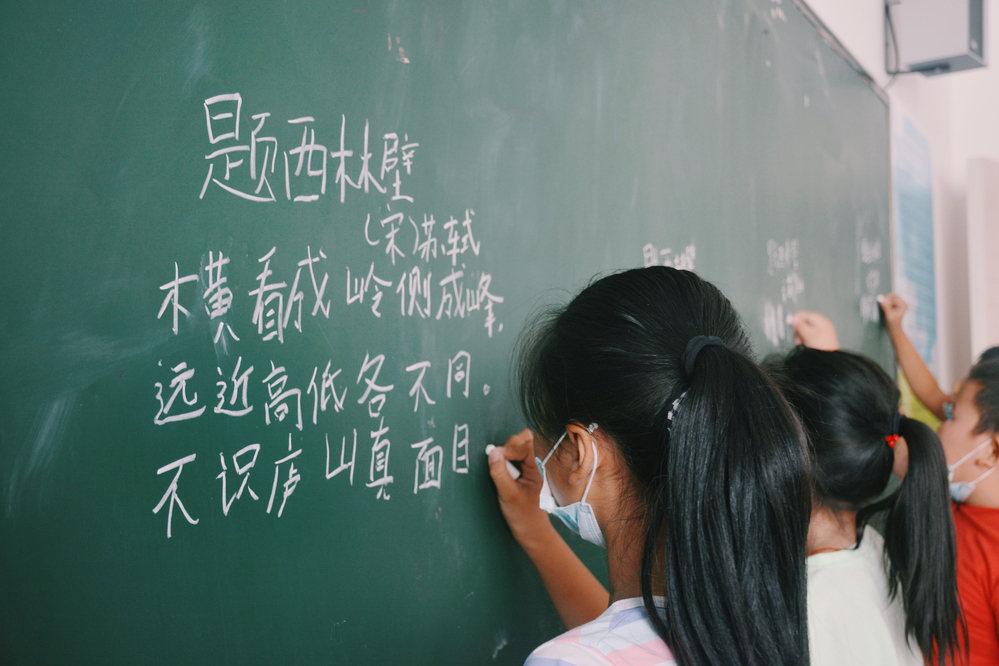 题西林壁
(宋)苏轼
横看成岭侧成峰,
远近高低各不同。
不识庐山真面目